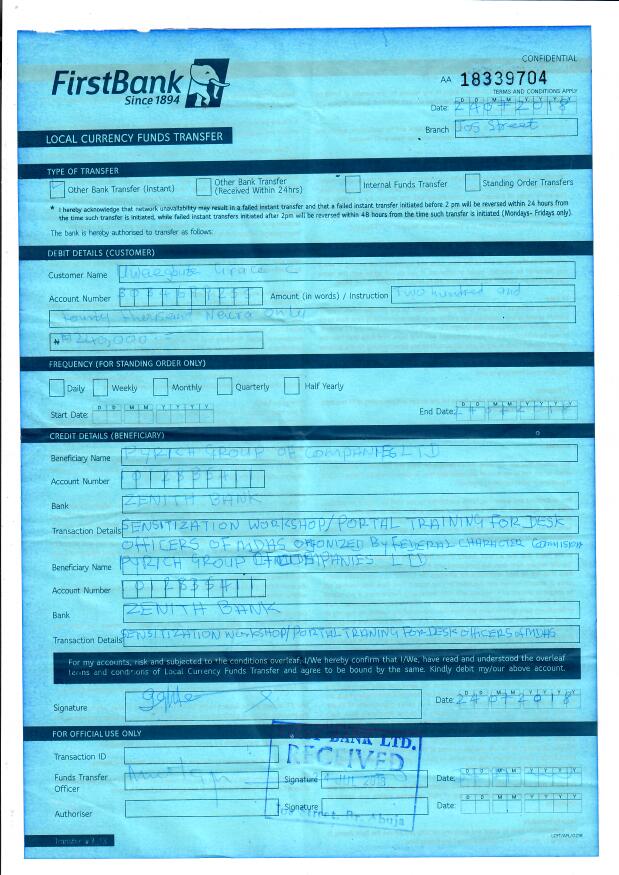 CONFIDENTIAL
FirstBank
Since 1894
AA 18339704
TERMS AND CONDITIONS APPLY
D D M M Y Y Y Y
Date: 24072018
Branch Jos Street
LOCAL CURRENCY FUNDS TRANSFER
TYPE OF TRANSFER
Other Bank Transfer (Instant) Other Bank Transfer (Received Within 24hrs) Internal Funds Transfer Standing Order Transfers
* I hereby acknowledge that network unavailability may result in a failed instant transfer and that a failed instant transfer initiated before 2 pm will be reversed within 24 hours from
the time such transfer is initiated, while failed instant transfers initiated after 2pm will be reversed within 48 hours from the time such transfer is initiated (Mondays- Fridays only).
The bank is hereby authorised to transfer as follows:
DEBIT DETAILS (CUSTOMER)
Customer Name Grace C
Account Number Amount (in words) / Instruction Two hundred and
fourty thousand Naira only
₦ 240,000
FREQUENCY (FOR STANDING ORDER ONLY)
Daily Weekly Monthly Quarterly Half Yearly
D D M M Y Y Y Y D D M M Y Y Y Y
Start Date: End Date: 24072018
CREDIT DETAILS (BENEFICIARY)
Beneficiary Name PYRICH GROUP OF COMPANIES LTD
Account Number
Bank ZENITH BANK
Transaction Details SENSITIZATION WORKSHOP/PORTAL TRAINING FOR DESK
OFFICERS OF MDAS BY FEDERAL CHARACTER
Beneficiary Name PYRICH GROUP OF COMPANIES LTD
Account Number
Bank ZENITH BANK
Transaction Details SENSITIZATION WORKSHOP/PORTAL TRANING FOR DESK OFFICERS OF MDAS
For my accounts, risk and subjected to the conditions overleaf, I/We hereby confirm that I/We, have read and understood the overleaf
terms and conditions of Local Currency Funds Transfer and agree to be bound by the same. Kindly debit my/our above account.
D D M M Y Y Y Y
Signature X Date: 24072018
FOR OFFICIAL USE ONLY
BANK LTD.
Transaction ID RECEIVED
Funds Transfer Officer Signature Date:
D D M M Y Y Y Y
Authoriser Signature Date:
Street, Br. Abuja